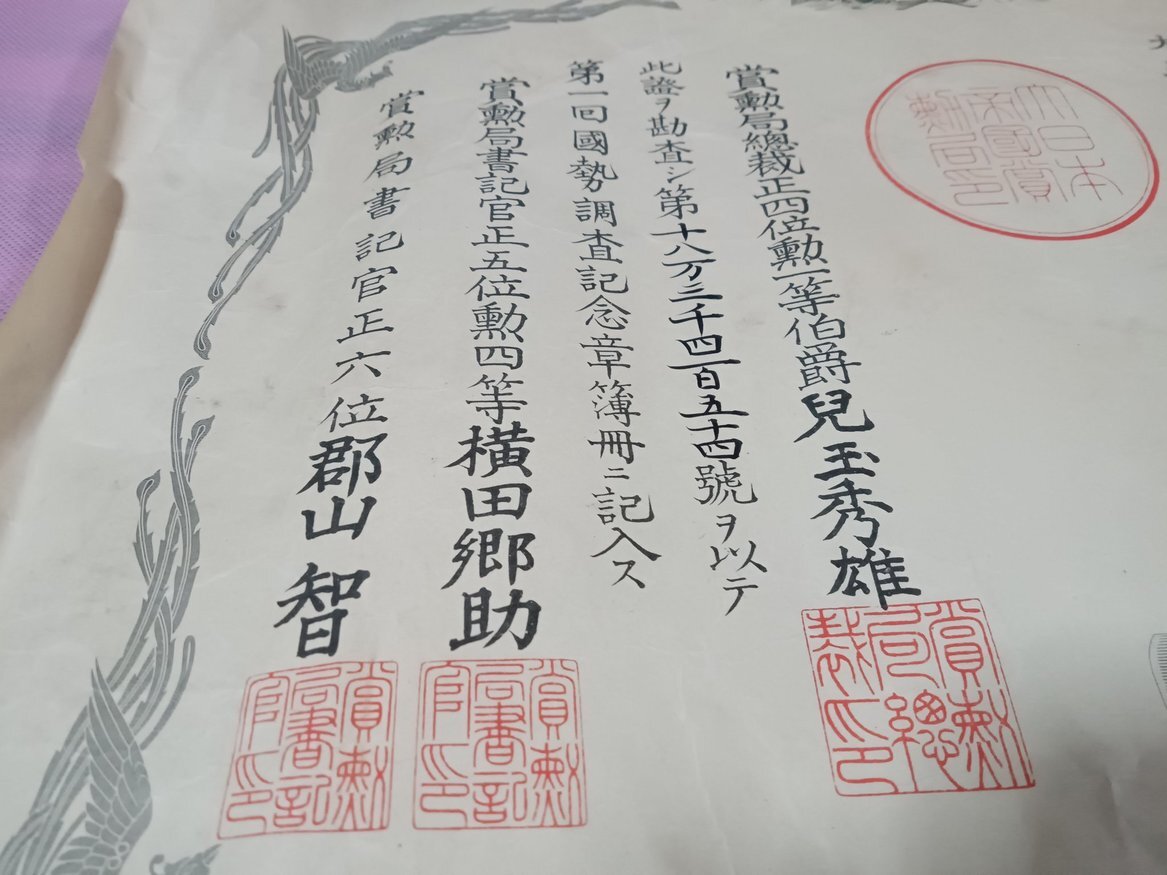 大日本帝國賞勳局印
賞勲局總裁正四位勲一等伯爵兒玉秀雄
賞勲局總裁印
此證ヲ勘査シ第十八万三千四百五十四號ヲ以テ
第一回國勢調査記念章簿冊ニ記入ス
賞勲局書記官正五位勲四等横田郷助
賞勲局書記官印
賞勲局書記官正六位郡山智
賞勲局書記官印